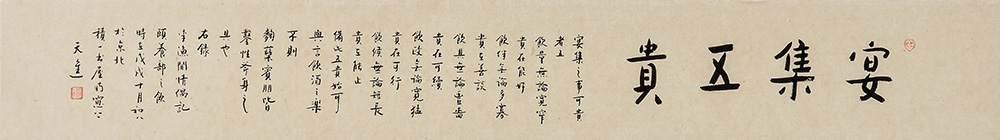 宴集五貴
宴集之事可貴
者五
飲量無論寬窄
貴在能好
飲伴無論多寡
貴在善談
飲具無論豐嗇
貴在可繼
飲政無論寬猛
貴在可行
飲候無論短長
貴在能止
備此五貴始可
與言飲酒之樂
不則
麴糵賓朋皆
鑿性斧身之
具也
右錄
李漁閒情偶記
頤養部之飲
時在戊戌十月初八
於京北
積一書屋明窗下